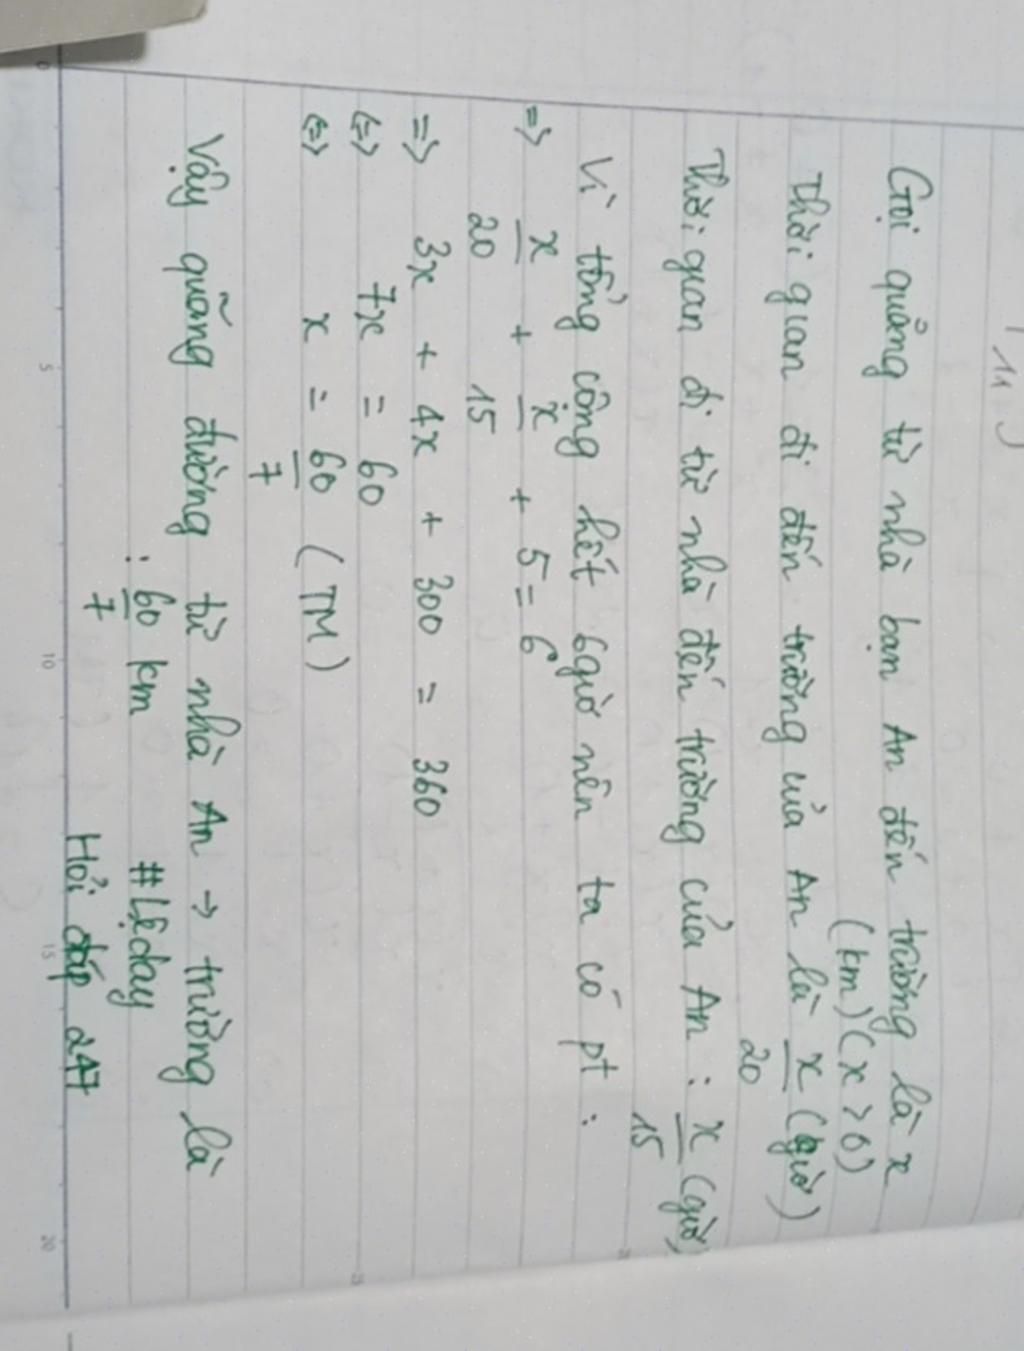 Gọi quảng từ nhà bạn An đến trường là x
(km) (x > 0)
Thời gian đi đến trường của An là x/20 (giờ)
Thời gian đi từ nhà đến trường của An : x/15 (giờ)
Vì tổng cộng hết 6giờ nên ta có pt :
=> x/20 + x/15 + 5 = 6
=> 3x + 4x + 300 = 360
<=> 7x = 60
<=> x = 60/7 (TM)
Vậy quãng đường từ nhà An → trường là
: 60/7 km #Lệday
Hỏi đáp 247